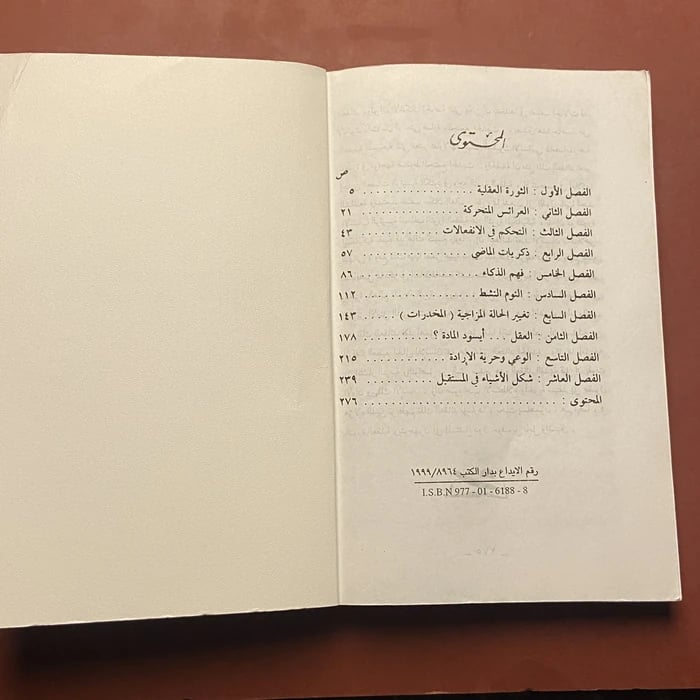 المحتوى
ص
الفصل الأول : الثورة العقلية . . . . . . . . . . . . . . . . ٥
الفصل الثاني : العرائس المتحركة . . . . . . . . . . . . . . ٢١
الفصل الثالث : التحكم في الانفعالات . . . . . . . . . . . ٤٣
الفصل الرابع : ذكريات الماضي . . . . . . . . . . . . . . . ٥٧
الفصل الخامس : فهم الذكاء . . . . . . . . . . . . . . . . ٨٦
الفصل السادس : النوم النشط . . . . . . . . . . . . . . . ١١٢
الفصل السابع : تغيير الحالة المزاجية ( المخدرات ) . . . . . ١٤٣
الفصل الثامن : العقل . . . أيسود المادة ؟ . . . . . . . . . ١٧٨
الفصل التاسع : الوعي وحرية الإرادة . . . . . . . . . . . . ٢١٥
الفصل العاشر : شكل الأشياء في المستقبل . . . . . . . . . . ٢٣٩
المحتوى : . . . . . . . . . . . . . . . . . . . . . . . . ٢٧٦
رقم الايداع بدار الكتب ١٩٩٩/٨٩٦٤
I.S.B.N 977 - 01 - 6188 - 8